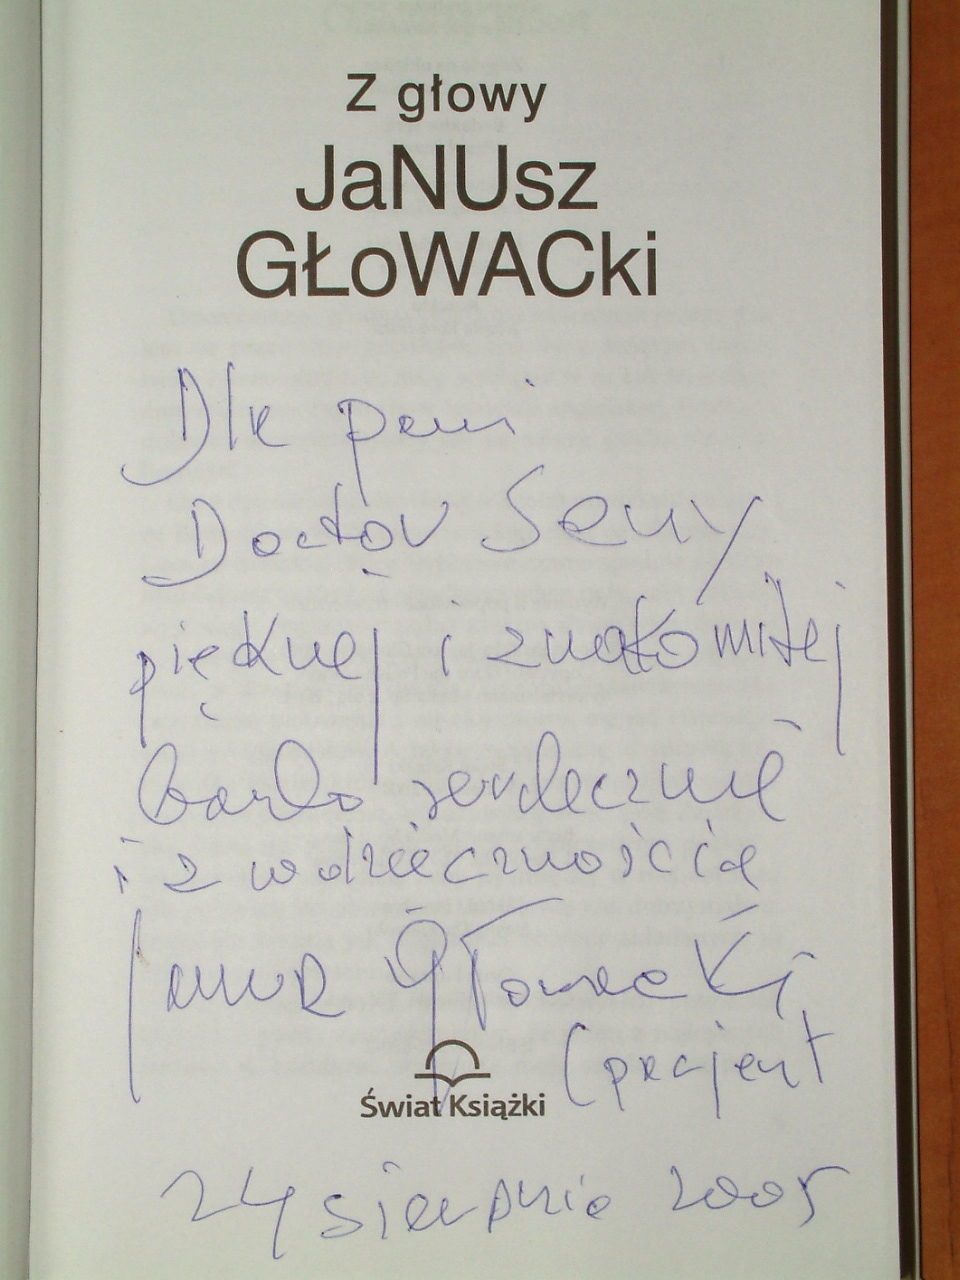 Z głowy
JaNUsz
GŁoWACki
Dla pani
Doctór
pięknej i znakomitej
bardzo serdecznie
i z wdzięcznością
Janusz Głowacki
(pacjent
Świat Książki
24 sierpnia 2005